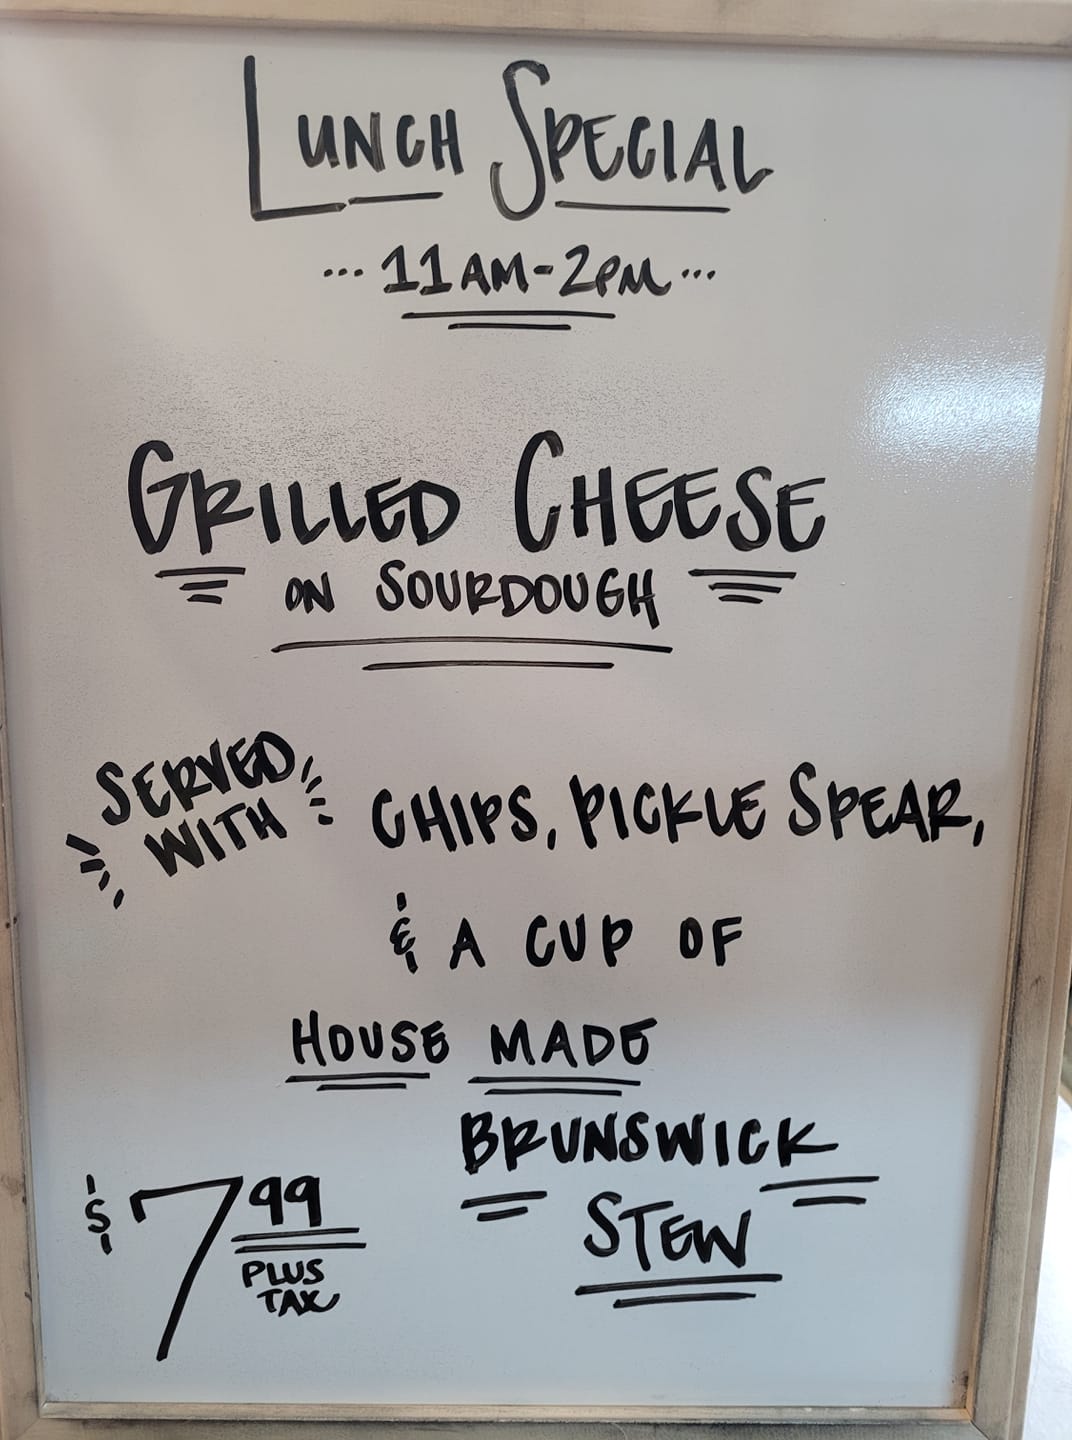 LUNCH SPECIAL
... 11AM-2PM ...
GRILLED CHEESE
ON SOURDOUGH
SERVED
WITH
CHIPS, PICKLE SPEAR,
& A CUP OF
HOUSE MADE
BRUNSWICK
STEW
$7.99
PLUS
TAX